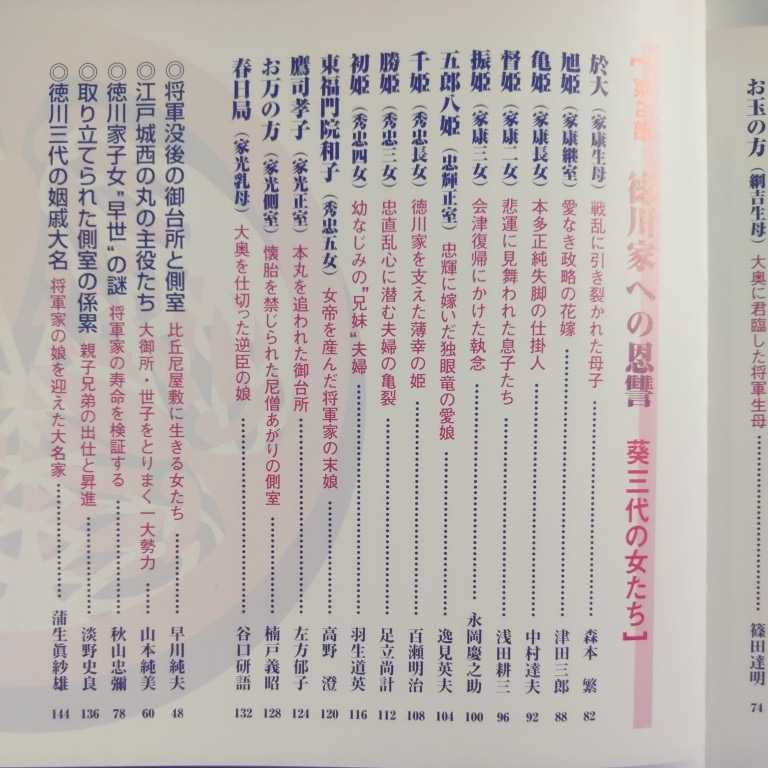 お玉の方（綱吉生母）大奥に君臨した将軍生母……篠田達明 74
徳川家への恩讐 葵三代の女たち】
於大（家康生母）戦乱に引き裂かれた母子……森本 繁 82
旭姫（家康継室）愛なき政略の花嫁……津田三郎 88
亀姫（家康長女）本多正純失脚の仕掛人……中村達夫 92
督姫（家康二女）悲運に見舞われた息子たち……浅田耕三 96
振姫（家康三女）会津復帰にかけた執念……永岡慶之助 100
五郎八姫（忠輝正室）忠輝に嫁いだ独眼竜の愛娘……逸見英夫 104
千姫（秀忠長女）徳川家を支えた薄幸の姫……百瀬明治 108
勝姫（秀忠三女）忠直乱心に潜む夫婦の亀裂……足立尚計 112
初姫（秀忠四女）幼なじみの"兄妹"夫婦……羽生道英 116
東福門院和子（秀忠五女）女帝を産んだ将軍家の末娘……高野 澄 120
鷹司孝子（家光正室）本丸を追われた御台所……左方郁子 124
お万の方（家光側室）懐胎を禁じられた尼僧あがりの側室……楠戸義昭 128
春日局（家光乳母）大奥を仕切った逆臣の娘……谷口研語 132
◎将軍没後の御台所と側室 比丘尼屋敷に生きる女たち……早川純夫 48
◎江戸城西の丸の主役たち 大御所・世子をとりまく一大勢力……山本純美 60
◎徳川家子女"早世"の謎 将軍家の寿命を検証する……秋山忠彌 78
◎取り立てられた側室の係累 親子兄弟の出仕と昇進……淡野史良 136
◎徳川三代の姻戚大名 将軍家の娘を迎えた大名家……蒲生眞紗雄 144